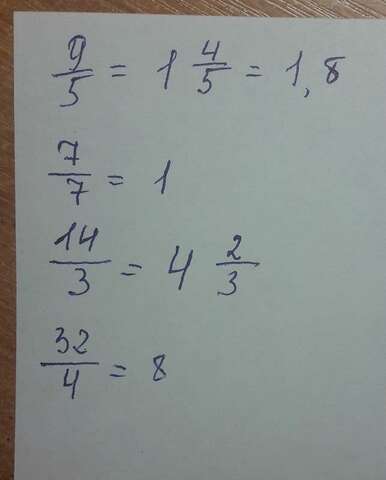 9/5 = 1 4/5 = 1,8
7/7 = 1
14/3 = 4 2/3
32/4 = 8